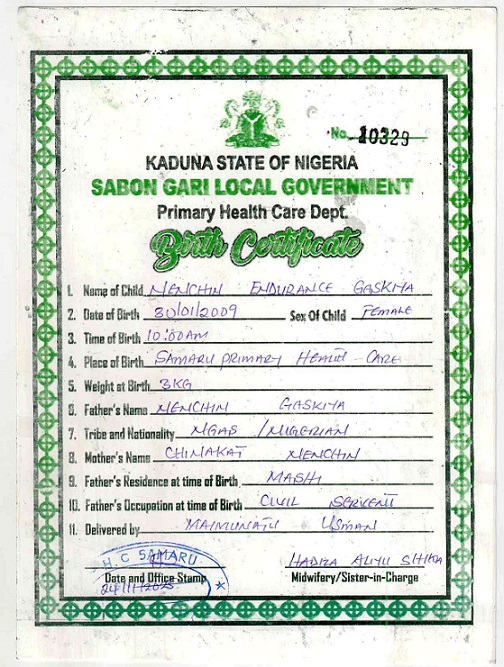 No. 10329
KADUNA STATE OF NIGERIA
SABON GARI LOCAL GOVERNMENT
Primary Health Care Dept.
Birth Certificate
1. Name of Child NENCHIN ENDURANCE GASKIYA
2. Date of Birth 30/01/2009 Sex Of Child FEMALE
3. Time of Birth 10:00AM
4. Place of Birth SAMARU PRIMARY HEALTH CARE
5. Weight at Birth 3KG
6. Father's Name NENCHIN GASKIYA
7. Tribe and Nationality NGAS / NIGERIAN
8. Mother's Name CHINAKAT NENCHIN
9. Father's Residence at time of Birth MASHI
10. Father's Occupation at time of Birth CIVIL SERVENT
11. Delivered by MAIMUNATU USMAN
H.C SAMARU HADIZA ALIYU SHIKA
Date and Office Stamp Midwifery/Sister-in-Charge